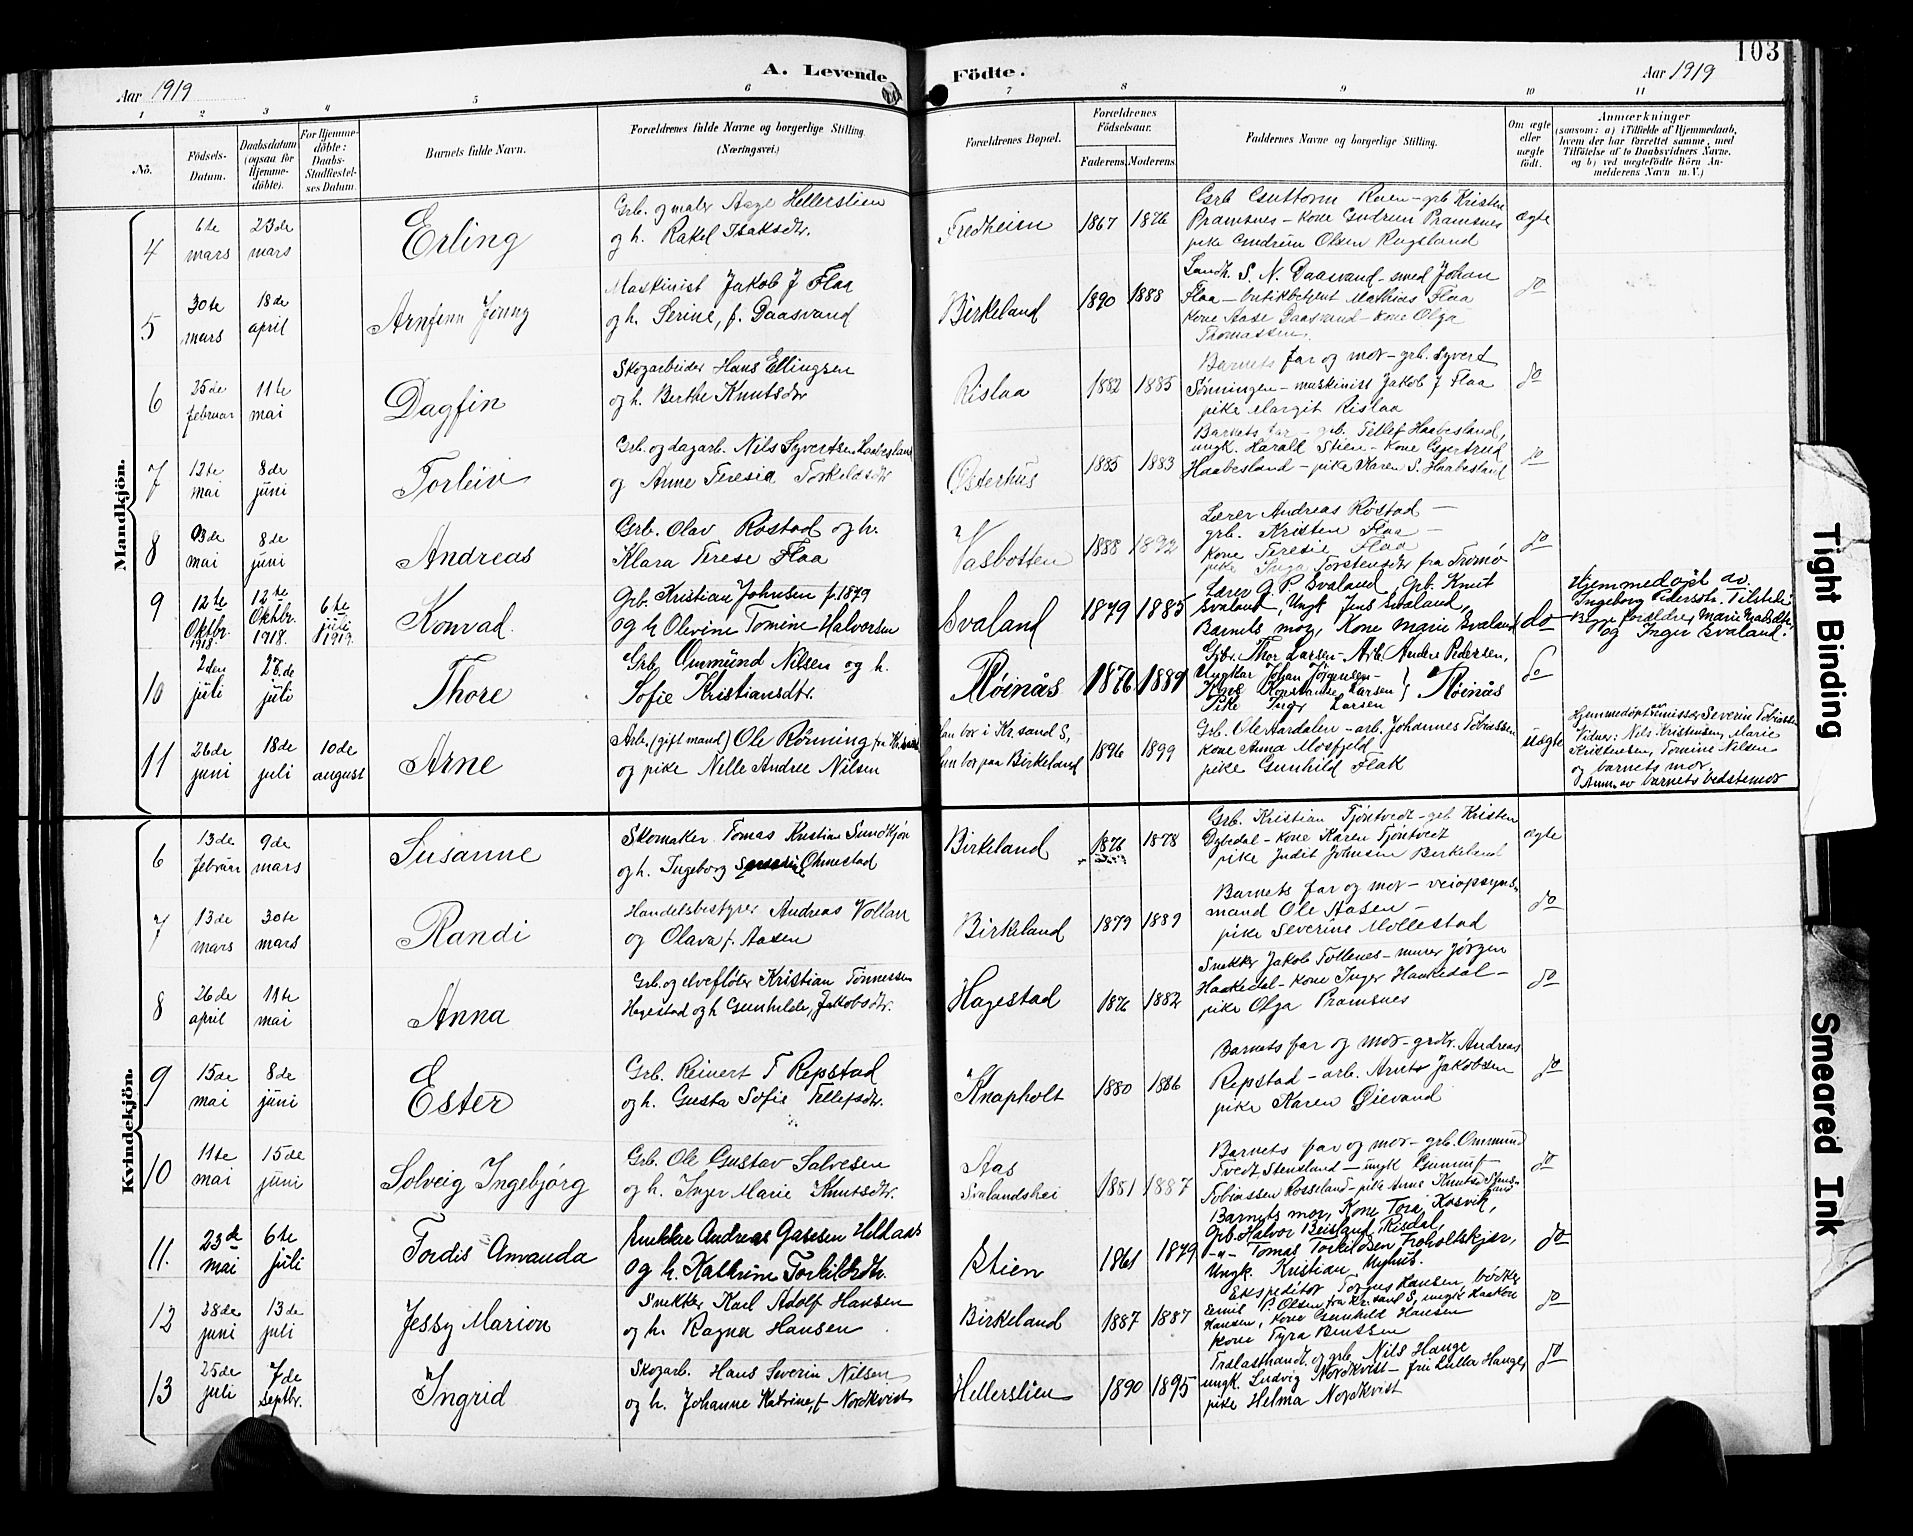 103
A. Levende Födte.
Aar 1919
Aar 1919
1 2 3 4 5 6 7 8 9 10 11
No.
Födsels-Datum.
Daabsdatum (ogsaa for Hjemmedöbte).
For Hjemmedöbte: Daabs-Stadfæstelses Datum.
Barnets fulde Navn.
Forældrenes fulde Navne og borgerlige Stilling. (Næringsvei.)
Forældrenes Bopæl.
Forældrenes Födselsaar.
Faderens. Moderens.
Faddernes Navne og borgerlige Stilling.
Om ægte eller uægte födt.
Anmærkninger
(saasom: a) i Tilfælde af Hjemmedaab, hvem der har forrettet samme, med Tilföielse af to Daabsvidners Navne, og b) ved uegtefödte Börn Anmelderens Navn m. V.)
Mandkjön.
4
6te mars
23de mars
Erling
Grb. og maler Aage Hellerslien
og h. Rakel Isaksdtr.
Fredheim
1867 1876
Grb Guttorm Raen – grb Kristen
Pramsnes – kone Gudrun Pramsnes
pike Gudrun Olsen Rugsland
ægte
5
30te mars
18de april
Arnfinn Jonny
Maskinist Jakob J Flaa
og h. Serine, f. Daasvand
Birkeland
1890 1888
Landh. S. N. Daasvand – smed Johan
Flaa – butikbetjent Mathias Flaa
kone Aase Daasvand – kone Olga
Thomassen.
do
6
25de februar
11te mai
Dagfin
Skogarbeider Hans Ellingsen
og h. Berthe Knutsdtr
Rislaa
1882 1885
Barnets far og mor – grb. Syvert
Sønningen – maskinist Jakob J Flaa
pike Margit Rislaa
do
7
12te mai
8de juni
Torleiv
Grb. og dagarb. Nils Syvertsen Haabesland
og Anne Teresia Torkildsdtr
Østerhus
1885 1883
Barnets far – grb. Tellef Haabesland,
ungk. Harald Stien – kone Gjertrud
Haabesland – pike Karen S. Haabesland
do
8
mai
8de juni
Andreas
Grb. Olav Røstad og h.
Klara Terese Flaa
Vasbotten
1888 1892
Lærer Andreas Røstad –
grb. Kristen Flaa –
kone Teresie Flaa
pike Inga Torstensdtr fra Tromø
do
9
12te Oktbr. 1918.
12te Oktbr. 1918.
6te juli 1919.
Konrad.
Grb. Kristian Johnsen f. 1879
og h Olevine Tomine Halvorsen
Svaland
1879 1885
Lærer G. P. Svaland, Grb. Knut
Svaland, Ungk Jens Svaland,
Barnets mor, Kone Marie Svaland
do
Hjemmedøpt av
Ingeborg Pedersdtr. Tilstede
Begge forældre, Marie
og Inger Svaland.
10
2den juli
27de juli
Thore
Grb. Ommund Nilsen og h.
Sofie Kristiansdtr.
Røinås
1876 1889
Gbr. Thor Larsen – Arb. Anders Pedersen,
Ungkar Johan Jørgensen –
Kone Konstanse Larsen } Røinås
Pike Inger Larsen
do
11
26de juni
18de juli
10de august
Arne
Arb. (gift mand) Ole Rönning fra
og pike Nelle Andree Nilsen
Han bor i Kr.sand S,
hun bor paa Birkeland
1896 1899
Grb. Ole Aardalen – arb. Johannes Tobiassen
kone Anna Mosfjeld
pike Gunhild Flak
uægte
Hjemmedøpt Severin Tobiassen
Vidner: Nils Kristensen, Marie
Kristensen, Tomine Nilsen
og barnets mor
Anm. av barnets bedstemor
Kvindekjön.
6
13de februar
9de mars
Susanne
Skomaker Tomas Kristian Sundkjøn
og h. Ingeborg Ohmestad
Birkeland
1876 1878
Grb. Kristian Tjöntvedt – grb Kristen
Dybedal – kone Karen Tjöntvedt
pike Judit Johnsen Birkeland
ægte
7
13de mars
30te mars
Randi
Handelsbestyrer Andreas Vollan
og Olava f. Aasen
Birkeland
1879 1889
Barnets far og mor – veiopsyns-
mand Ole Aasen –
pike Severine Mollestad
do
8
26de april
11te mai
Anna
Grb. og elvefløter Kristian Tønnessen
Hagestad og h Gunhilde Jakobsdtr.
Hagestad
1876 1882
Snekker Jakob Tollenes – murer Jørgen
Haakedal – kone Inger Haakedal –
pike Olga Pramsnes
do
9
15de mai
8de juni
Ester
Grb. Reinert T Repstad
og h. Gusta Sofie Tellefsdtr.
Knapholt
1880 1886
Barnets far og mor – grdr. Andreas
Repstad – arb. Arnts Jakobsen
pike Karen Øievand
do
10
11te mai
15de juni
Solveig Ingebjørg
Grb. Ole Gustav Salvesen
og h. Inger Marie Knutsdtr.
Aas
Svalandshei
1881 1887
Barnets far og mor – grb. Ommund
Tvedt, Stensland – ungk Gunnuf
Tobiassen Rosseland – pike Anne Knutsd Stensland
do
11.
23de mai
6te juli
Tordis Amanda
Snekker Andreas Gasesen Heldaas
og h. Kathrine Torkildsdtr.
Stien
1861 1879
Barnets mor, Kone Tora Kosvik,
Grb. Halvor Beisland, Risdal,
–"– Tomas Torkildsen Troholtskjær,
Ungk. Kristian Myhus.
do
12
28de juni
13de juli
Jessy Marion
Snekker Karl Adolf Hansen
og h. Ragna Hansen
Birkeland
1887 1887
Ekspeditør Torgus Hansen, bødker
Emil P. Olsen fra Kr.sand S, ungk Haakon
Hansen, kone Gunhild Hansen
kone Tyra Bentsen
do
13
25de juli
7de septbr.
Ingrid
Skogarb. Hans Severin Nilsen
og h. Johanne Katrine, f. Nordkvist
Hellerslien
1890 1895
Trælasthandl. og grb. Nils Hauge
ungk. Ludvig Nordkvist – fru Lulla Hauge,
pike Helma Nordkvist
do
Tight Binding
Smeared Ink